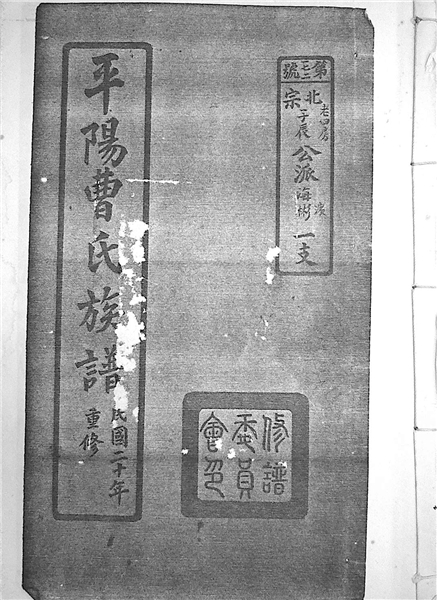 第號
北宗
老四房
子良
公派
海彬
濱
一支
平陽曹氏族譜
民國二十年
重修
修譜
委員
會印